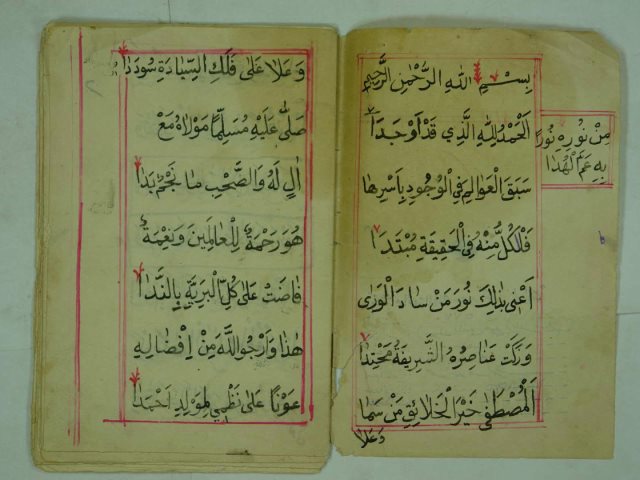 بِسْمِ اللهِ الرَّحْمٰنِ الرَّحِيْمِ
اَلْحَمْدُ لِلّٰهِ الَّذِي قَدْ اَوْجَدَا
مِنْ نُوْرِهِ نُوْرًا
بِهِ عَمَّ الْهُدَا
سَبَقَ الْعَوَالِمَ فِي الْوُجُوْدِ بِاَسْرِهَا
فَلْكُلُّ مِنْهُ فِي الْحَقِيْقَةِ مُبْتَدَا
اَعْنِي بِذٰلِكَ نُوْرَ مَنْ سَادَ الْوَرٰى
وَزَكَتْ عَنَاصِرُهُ الشَّرِيْفَةُ مَحْتِدَا
اَلْمُصْطَفٰى خَيْرُ الْخَلَائِقِ مَنْ سَمَا
وَعَلَا
وَعَلَا عَلٰى فَلَكِ السِّيَادَةِ سُوْدَدَا
صَلّٰى عَلَيْهِ مُسَلِّمًا مَوْلَاهُ مَعْ
اٰلٍ لَهُ وَالصَّحْبِ مَا نَجْمٌ بَدَا
هُوَ رَحْمَةٌ لِلْعَالَمِيْنَ وَنِعْمَةٌ
فَاضَتْ عَلٰى كُلِّ الْبَرِيَّةِ بِالنَّدَا
هٰذَا وَاَرْجُو اللَّهَ مِنْ اِفْضَالِهِ
عَوْنًا عَلٰى نَظْمِي لِمَوْلِدِ اَحْمَدَا